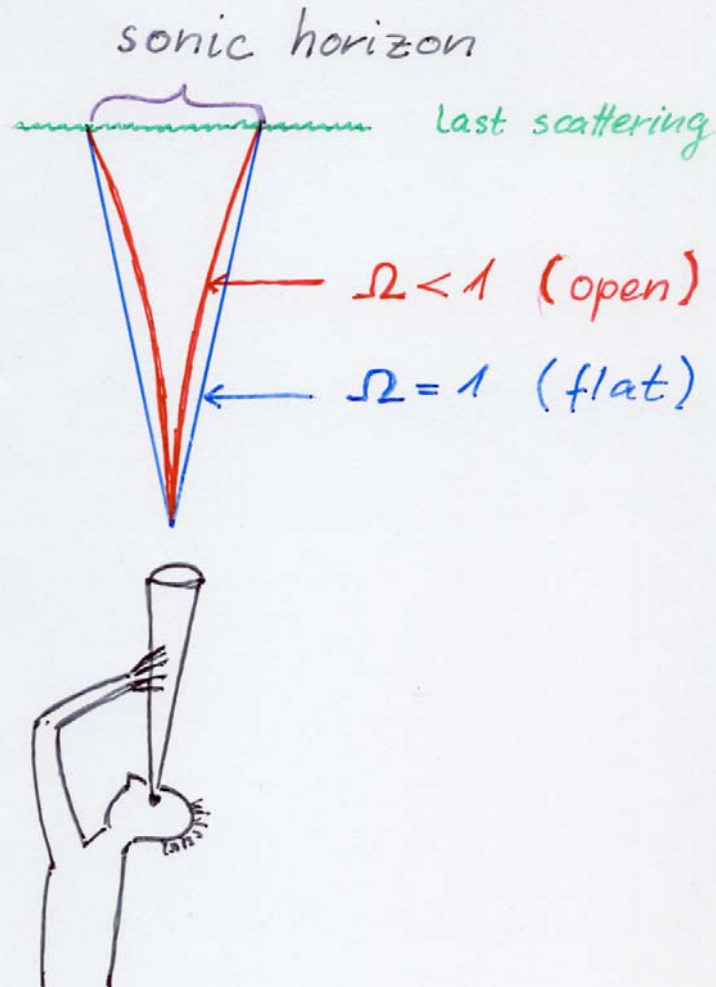 sonic horizon
Last scattering
Ω < 1 (open)
Ω = 1 (flat)